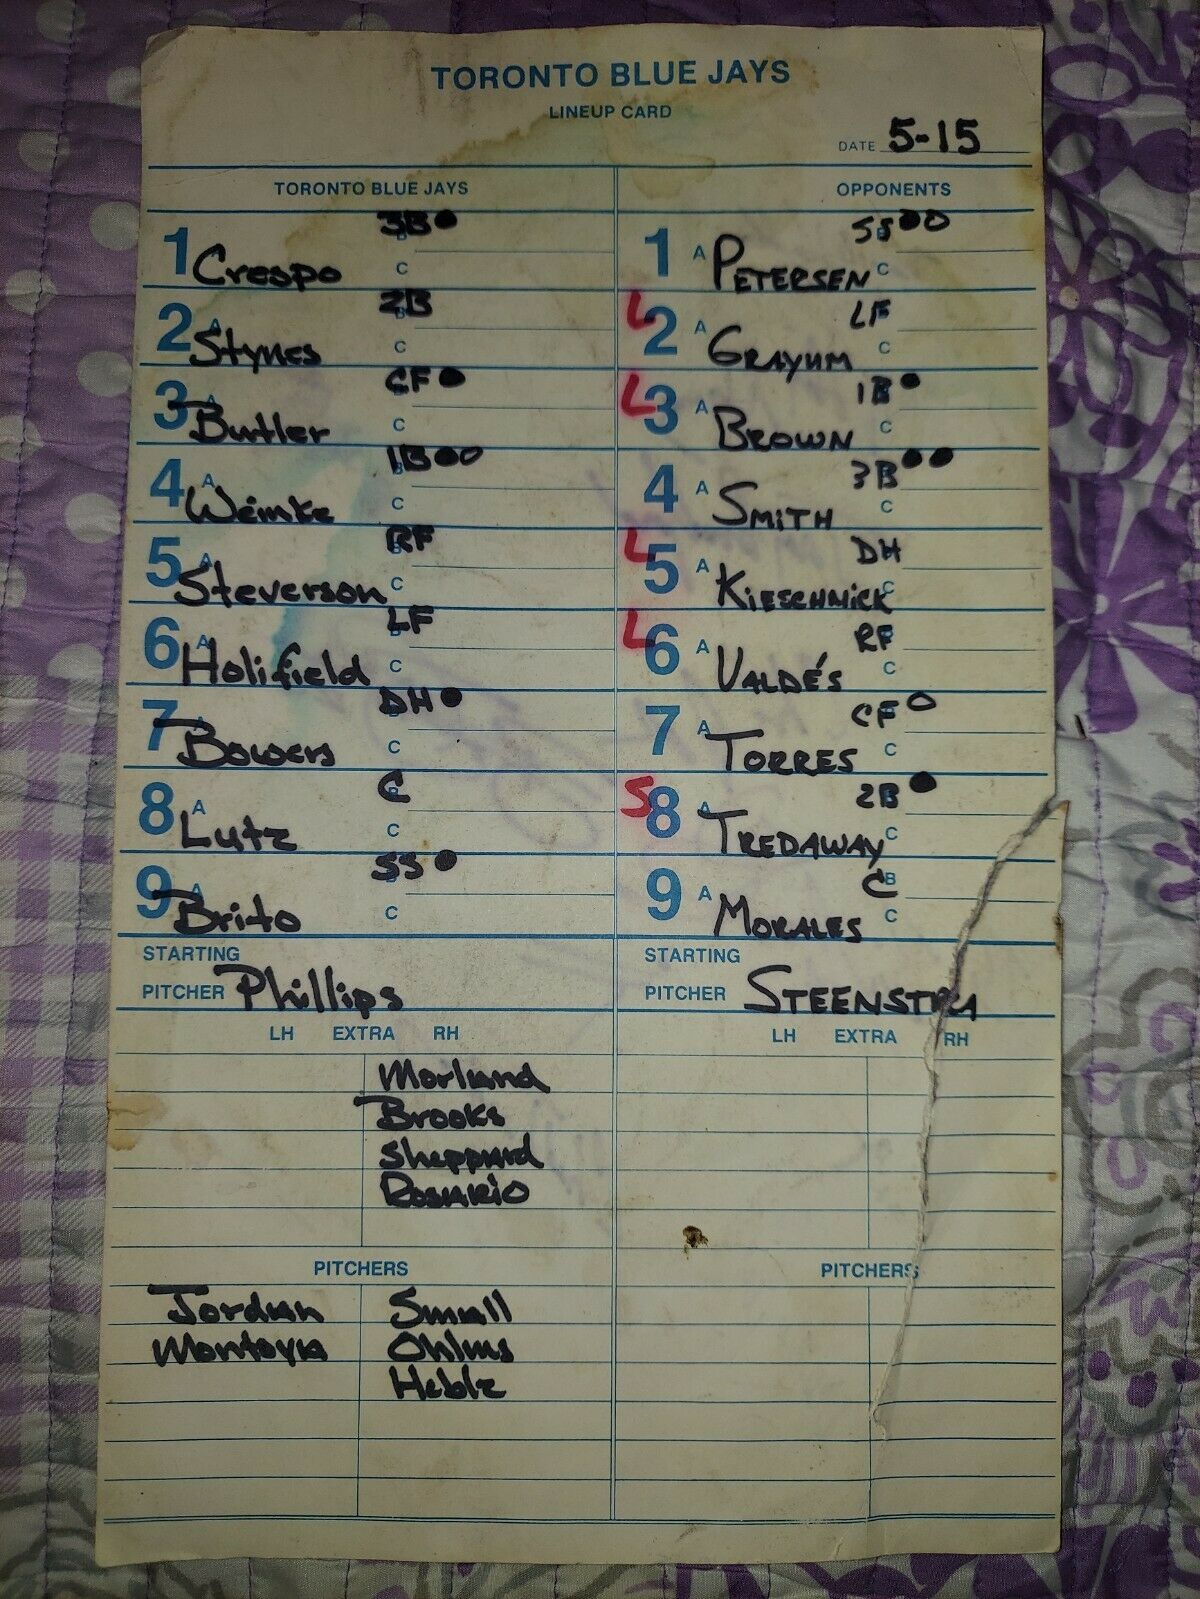 TORONTO BLUE JAYS
LINEUP CARD
DATE 5-15
TORONTO BLUE JAYS
3B
1 Crespo C
2B
2 A Stynes C
CF
3 A Butler C
1B
4 A Weinke C
RF
5 A Steverson C
LF
6 A Holifield C
DH
7 A Bowers C
C
8 A Lutz C
SS
9 A Brito C
STARTING
PITCHER Phillips
LH EXTRA RH
Morland
Brooks
Sheppard
Rosario
PITCHERS
Jordan Small
Montoya Ohlms
Heble
OPPONENTS
SS
1 A PETERSEN C
LF
L 2 A GRAYUM C
1B
L 3 A BROWN C
3B
4 A SMITH C
DH
L 5 A KIESCHNICK C
RF
L 6 A VALDÉS C
CF
7 A TORRES C
2B
S 8 A TREDAWAY C
C B
9 A MORALES C
STARTING
PITCHER STEENSTRA
LH EXTRA RH
PITCHERS